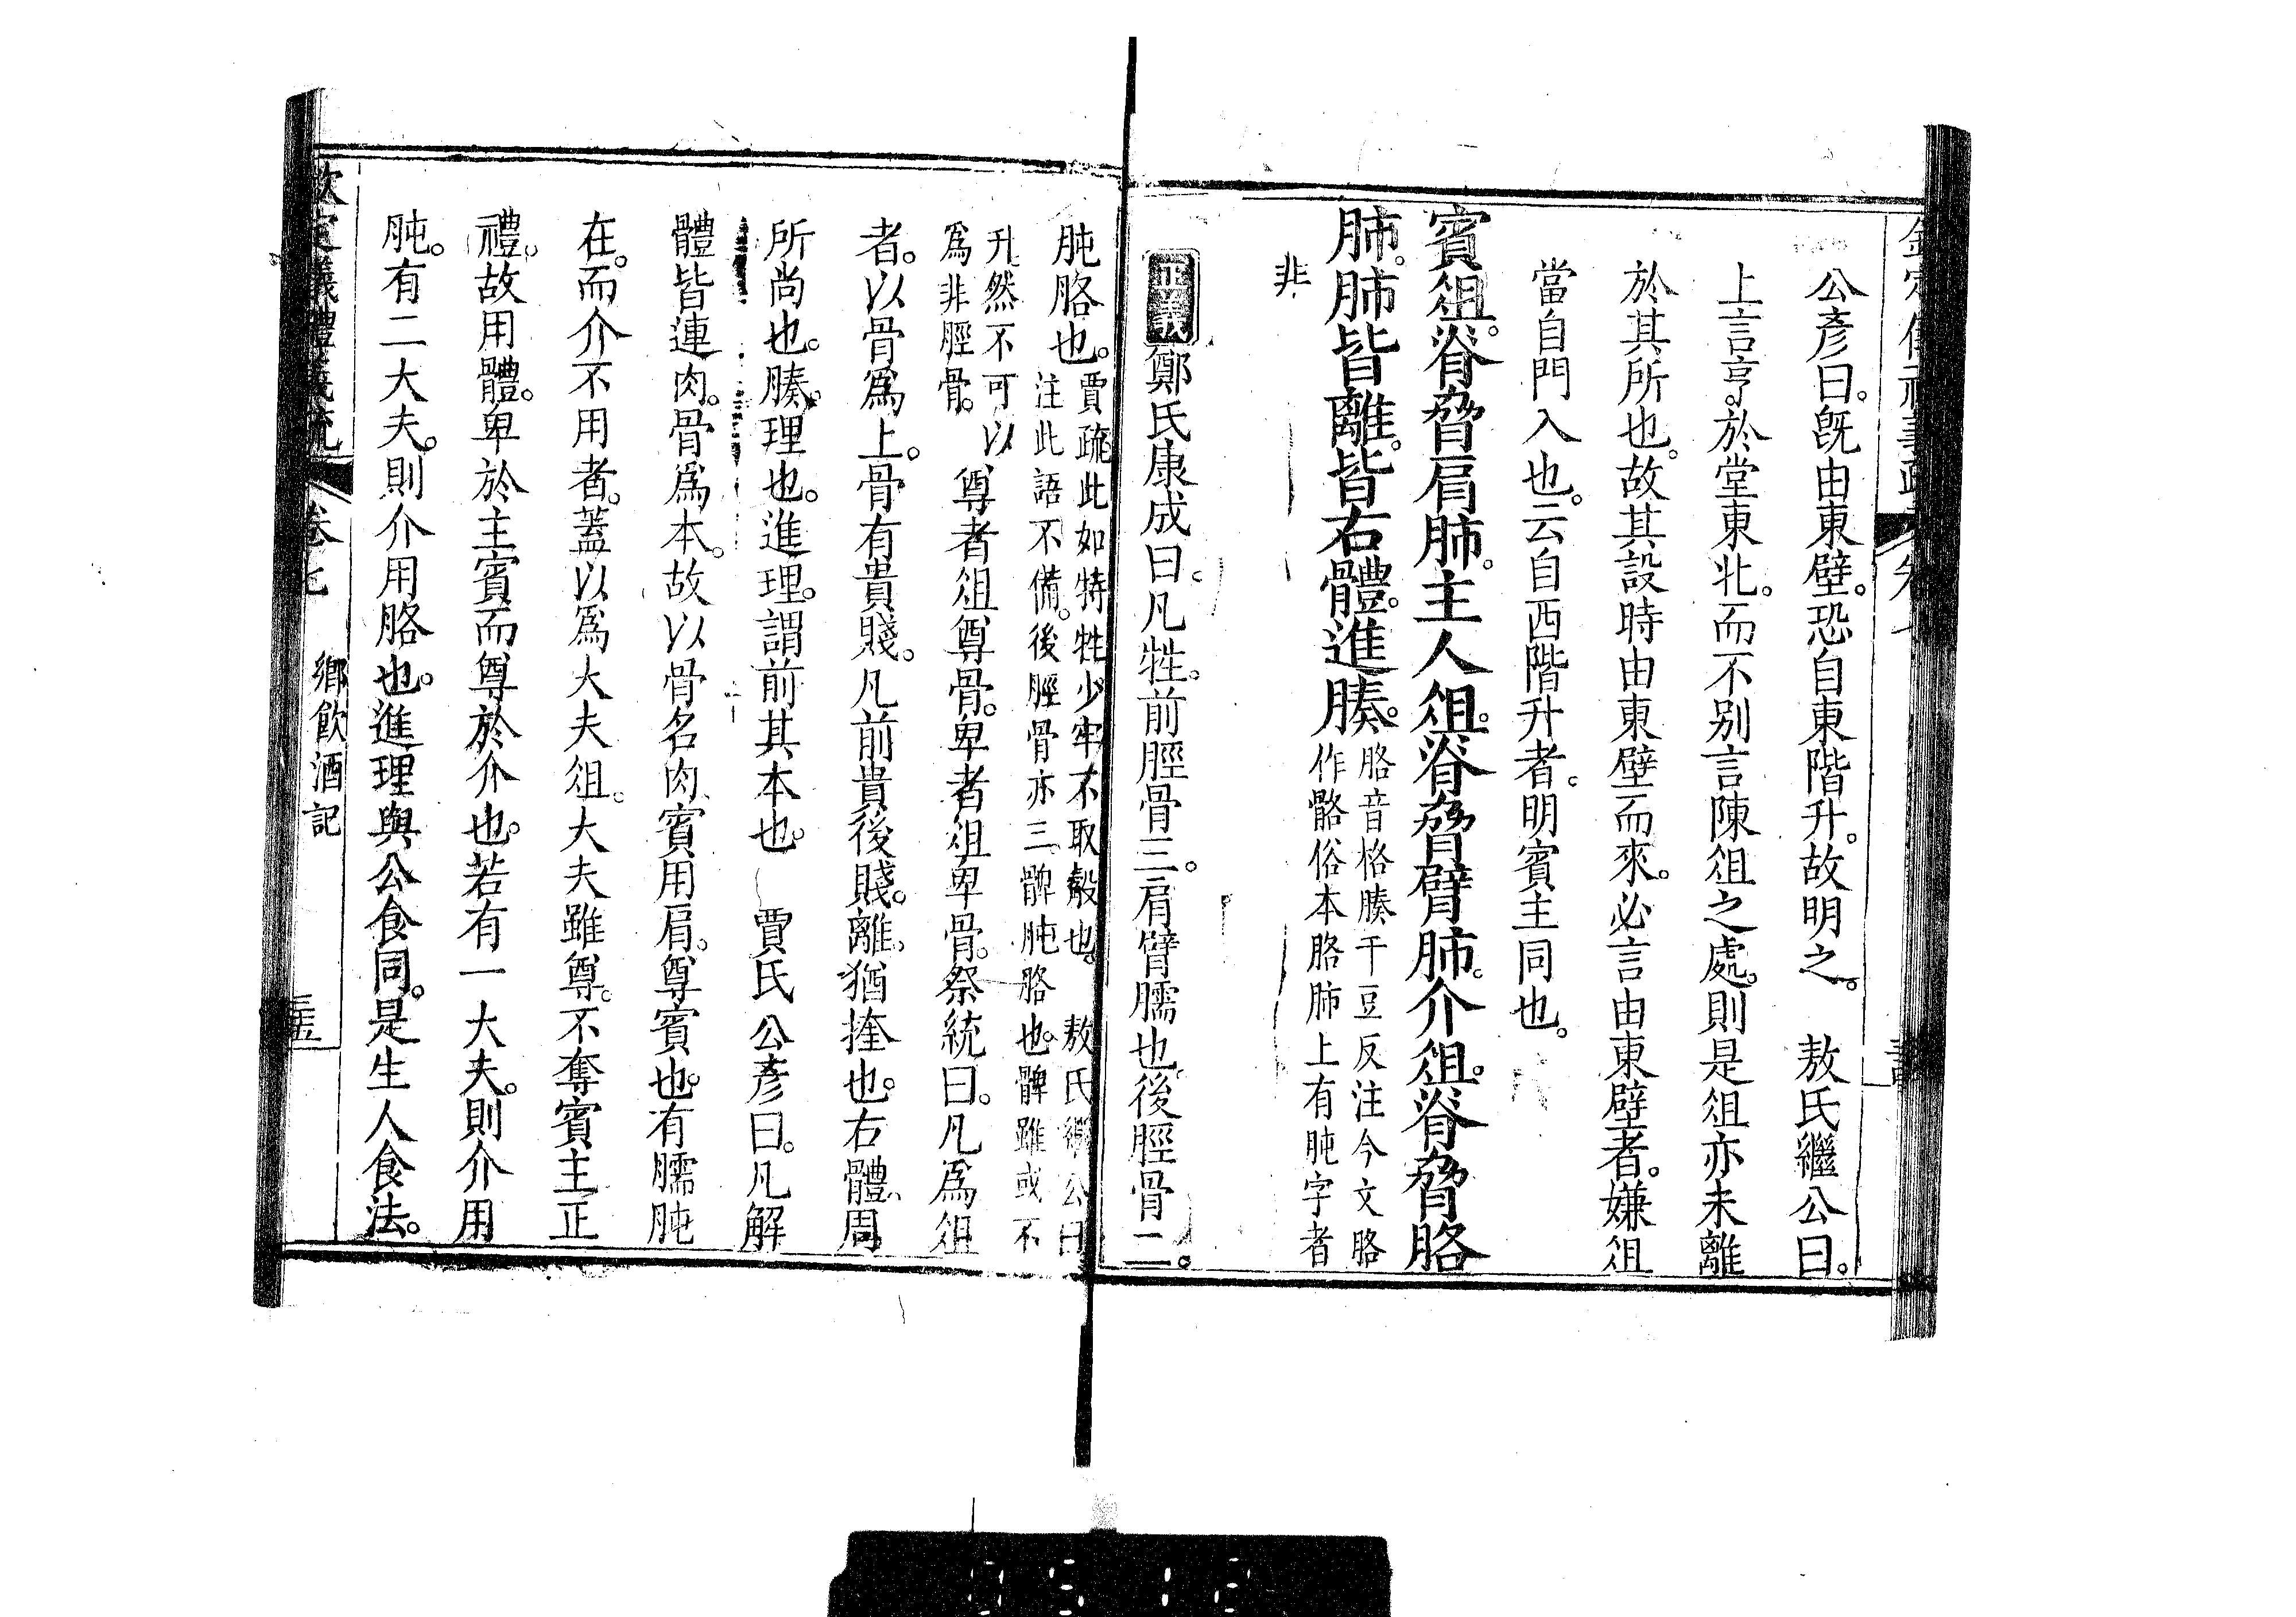 公彥曰。旣由東壁。恐自東階升。故明之。　敖氏繼公曰。
上言亨。於堂東北。而不别言陳俎之處。則是俎亦未離
於其所也。故其設時由東壁而來。必言由東壁者。嫌俎
當自門入也。云自西階升者。明賓主同也。
賓俎。脊脅肩肺。主人俎。脊脅臂肺。介俎。脊脅胳
肺。肺皆離。皆右體。進腠。
胳音格腠千豆反注今文胳
作骼俗本胳肺上有肫字者
非
正義鄭氏康成曰。凡牲。前脛骨三。肩臂臑也。後脛骨二。
肫胳也。
賈疏此如特牲少牢不取觳也。　敖氏繼公曰
注此語不備。後脛骨亦三。髀肫胳也。髀雖或不
升然不可以
爲非脛骨。
尊者俎尊骨。卑者俎卑骨。祭統曰。凡爲俎
者。以骨爲上。骨有貴賤。凡前貴後賤。離。猶㧢也。右體。周
所尚也。腠。理也。進理。謂前其本也。　賈氏公彥曰。凡解
體皆連肉。骨爲本。故以骨名肉。賓用肩。尊賓也。有臑肫
在。而介不用者。蓋以爲大夫俎。大夫雖尊。不奪賓主正
禮。故用體。卑於主賓而尊於介也。若有一大夫。則介用
肫。有二大夫。則介用胳也。進理與公食同。是生人食法。
欽定儀禮義疏
卷七
鄉飮酒記